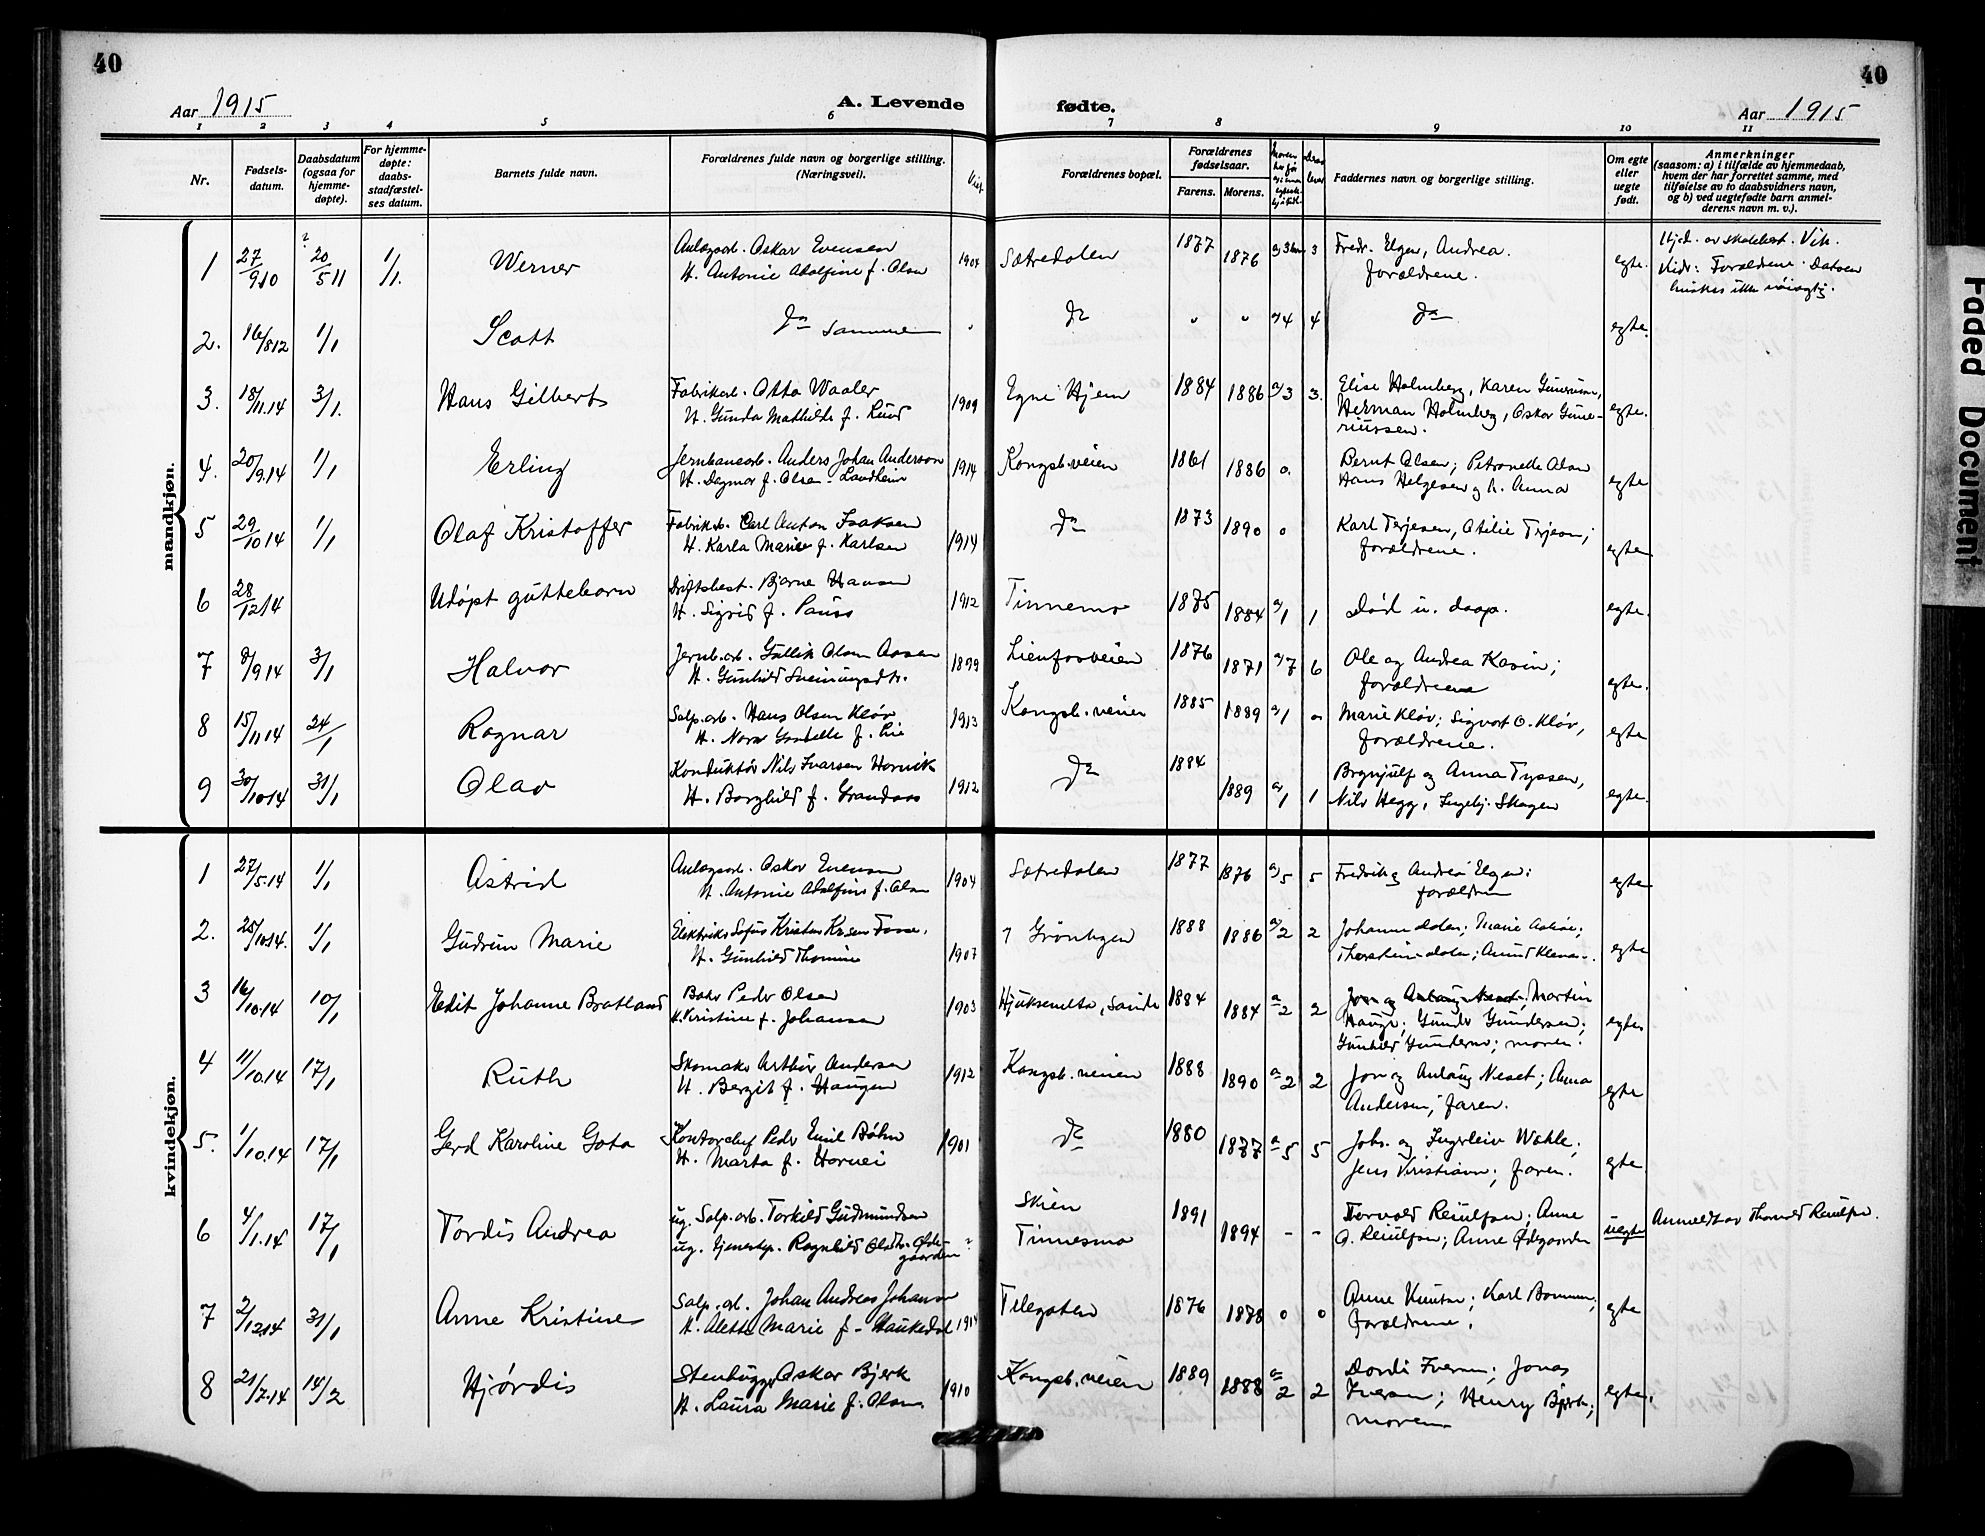 40
40
Aar 1915
A. Levende fødte.
Aar 1915
1 2 3 4 5 6 7 8 9 10 11
Nr.
Fødsels-
datum.
Daabsdatum
(ogsaa for
hjemme-
døpte).
For hjemme-
døpte:
daabs-
stadfæstel-
ses datum.
Barnets fulde navn.
Forældrenes fulde navn og borgerlige stilling.
(Næringsvei).
Forældrenes bopæl.
Forældrenes
fødselsaar.
Farens. Morens.
Faddernes navn og borgerlige stilling.
Om egte
eller
uegte
født.
Anmerkninger
(saasom: a) i tilfælde av hjemmedaab,
hvem der har forrettet samme, med
tilføielse av to daabsvidners navn,
og b) ved uegtefødte barn anmel-
derens navn m. v.).
mandkjøn.
1 27/9 10 20/5 11 1/1. Werner Anlægsarb. Oskar Evensen 1904 Sætredalen 1877 1876 3 Fredr. Elgen, Andrea. egte.
H. Antonie Adolfine f. Olsen forældrene.
Forældrene. Datoen
huskes ikke nøiagtig.
2. 16/8 12 1/1 Scott Do samme Do 4 4 Do egte.
3. 18/11.14 3/1. Hans Gilbert Fabrikarb. Otto Waaler 1909 Egne Hjem 1884 1886 3 3. Elise Holmberg, Karen Gunerussen, egte.
H. Gunda Mathilde f. Ruud Herman Holmberg, Oskar Gune-
riussen.
4. 20/9.14 1/1 Erling Jernbanearb. Anders Johan Anderson 1914 Kongsb.veien 1861 1886 0. Bernt Olsen; Petronelle Olsen egte
H. Dagmar f. Olsen - Landheim Hans Helgesen og h. Anna
5 29/10 14 1/1 Olaf Kristoffer Fabrikarb. Carl Anton Isaksen 1914 Do 1873 1890 0 Karl Terjesen, Otilie Terjesen; egte
H. Karla Marie f. Karlsen forældrene.
6 28/12 14 Udøpt guttebarn Driftsbest. Bjarne Hansen 1912 Tinnemo 1875 1884 1 1 Død u. daap. egte.
H. Sigrid f. Pauss
7 8/9 14 3/1 Halvor Jernb.arb. Gullik Olsen Aasen 1899 Lienfosveien 1876 1871 7 6 Ole og Andrea Kasin; egte.
H. Gunhild Sveinungsdtr. forældrene
8 15/11 14 24/1 Ragnar Salp.arb. Hans Olsen Kløv 1913 Kongsb.veien 1885 1889 1 0 Marie Kløv; Sigvart O. Kløv, egte
H. Nora f. Lie forældrene.
9 30/10 14 31/1 Olav Konduktør Nils Ivarsen Hornvik 1912 Do 1884 1889 1 1 Brynjulf og Anna Tyssen, egte.
H. Borghild f. Grandaas Nils Hegg, Ingebj. Skogen
kvindekjøn.
1 27/5.14 1/1 Astrid Anlægsarb. Oskar Evensen 1904 Sætredalen 1877 1876 5 5 Fredrik og Andrea Elgen; egte
H. Antonie Adolfine f. Olsen forældrene
2. 25/10 14. 1/1 Gudrun Marie Elektriker Sofus Kristen Krsen Fosse. 1907 Grönbyen 1888 1886 2 2 Johanne dalen; Marie egte
H. Gunhild Thomine
3 16/10.14 10/1 Edit Johanne Bratland Baker Peder Olsen 1903 Hjuksemelta, Sande 1884 1884 2 2 Jon og Anlaug Neset; Martin egte
H. Kristine f. Johansen Hauge; Gunder Gundersen;
Gunhild Gundersen; moren.
4 11/10.14 17/1 Ruth Skomaker Arthur Andersen 1912 Kongsb.veien 1888 1890 2 2 Jon og Anlaug Neset; Anna egte
H. Bergit f. Haugen Andersen; faren.
5. 1/10.14 17/1 Gerd Karoline Gota Kontorchef Peder Emil Bøhn 1901 Do 1880 1877 5 5 Johs. og Ingerleiv Wahle; egte
H. Marta f. Hornei Jens Kristiansen; faren.
6 4/1.14 17/1 Tordis Andrea ug. Salp.arb. Torkild Gudmundsen Skien 1891 1894 - - Torvald Reiulfsen; Anne uegte Anmeldt av Thorvald Reiulfsen.
ug. tjenestep. Ragnhild Olsdtr. Øde- ? Tinnesmo O. Reiulfsen; Anne Ødegaarden
gaarden
7 2/12 14 31/1 Anne Kristine Salp.arb. Johan Andreas Johansen 1914 Telegaten 1876 1878 0 0 Anne Knutsen; Karl egte
H. Alette Marie f. Haukedal forældrene.
8 21/7.14 14/2 Hjørdis Stenhugger Oskar Bjerk 1910 Kongsb.veien 1889 1888 2 2 Dordi Iversen; Jonas egte.
H. Laura Marie f. Olsen. Iversen; Henry Bjerk;
moren
Faded Document